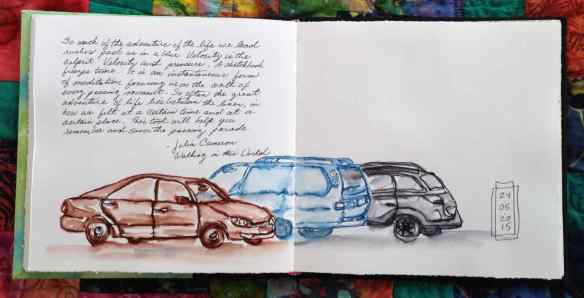 So much of the adventure of the life we lead
rushes past us in a blur. Velocity is the
culprit. Velocity and pressure. A sketchbook
freezes time. It is an instantaneous form
of meditation focusing us on the worth of
every passing moment. So often the great
adventure of life lies between the lines, in
how we felt at a certain time and at a
certain place. This tool will help you
remember and savor the passing parade.
- Julia Cameron
Walking in this World
24
05
20
15